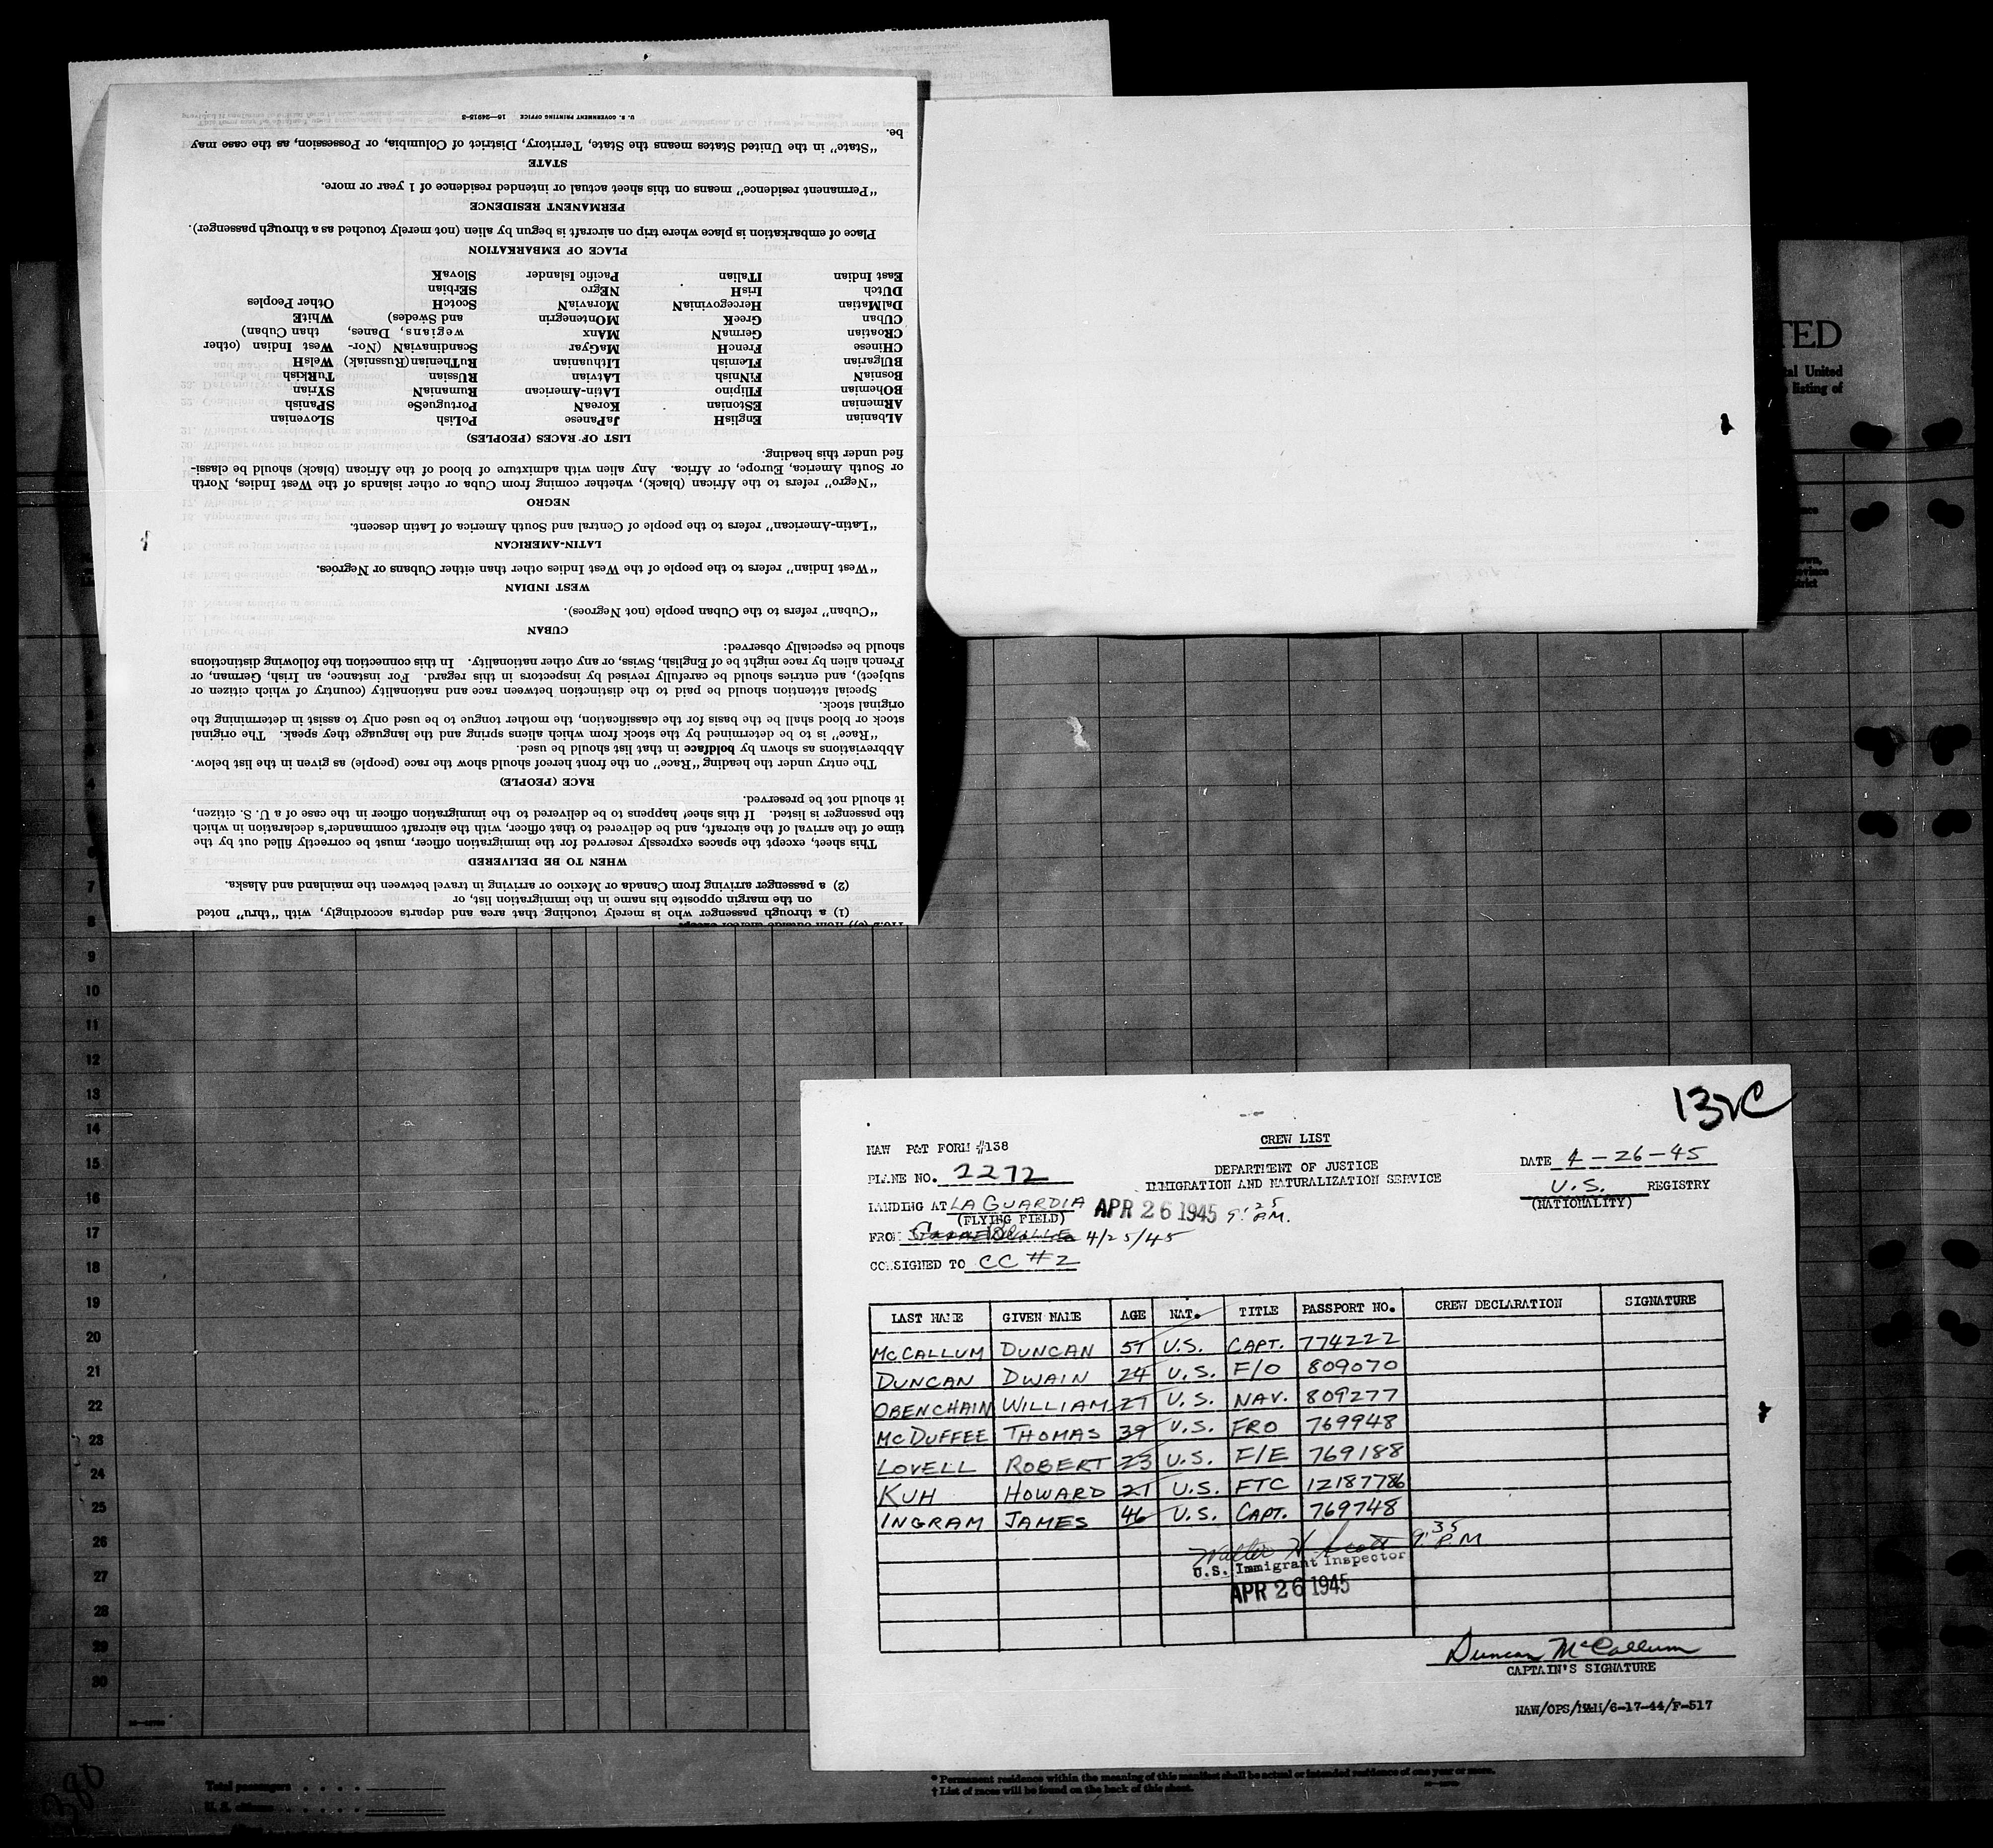 U. S. GOVERNMENT PRINTING OFFICE 16—24915-2
be.
"State" in the United States means the State, Territory, District of Columbia, or Possession, as the case may
STATE
"Permanent residence" means on this sheet actual or intended residence of 1 year or more.
PERMANENT RESIDENCE
Place of embarkation is place where trip on aircraft is begun by alien (not merely touched as a through passenger).
PLACE OF EMBARKATION
East Indian ITalian Pacific Islander SlovaK
DUtch IrisH NEgro SErbian
DalMatian HercegoviniaN MoraviaN ScotcH Other Peoples
CUban GreeK MOntenegrin and Swedes) WhitE
CRoatian GermaN MAnx wegians, Danes, than Cuban)
CHinese FrencH MaGyar ScandinaviaN (Nor- West Indian (other
BUlgarian FLemish LIthuanian RuThenian (Russniak) WelsH
BosniaN FiNNish LAtvian RUssian TuRkish
BOhemian FIlipino LAtin-American RumaniaN SYrian
ARmenian EStonian KoreaN PortugueSe SPanish
ALbanian EnglisH JaPanese PoLish SLovenian
LIST OF RACES (PEOPLES)
fied under this heading.
or South America, Europe, or Africa. Any alien with admixture of blood of the African (black) should be classi-
"Negro" refers to the African (black), whether coming from Cuba or other islands of the West Indies, North
NEGRO
"Latin-American" refers to the people of Central and South America of Latin descent.
LATIN-AMERICAN
"West Indian" refers to the people of the West Indies other than either Cubans or Negroes.
WEST INDIAN
"Cuban" refers to the Cuban people (not Negroes).
CUBAN
should be especially observed:
French alien by race might be of English, Swiss, or any other nationality. In this connection the following distinctions
subject), and entries should be carefully revised by inspectors in this regard. For instance, an Irish, German, or
Special attention should be paid to the distinction between race and nationality (country of which citizen or
original stock.
stock or blood shall be the basis for the classification, the mother tongue to be used only to assist in determining the
"Race" is to be determined by the stock from which aliens spring and the language they speak. The original
Abbreviations as shown by boldface in that list should be used.
The entry under the heading "Race" on the front hereof should show the race (people) as given in the list below.
RACE (PEOPLE)
it should not be preserved.
the passenger is listed. If this sheet happens to be delivered to the immigration officer in the case of a U. S. citizen,
time of the arrival of the aircraft, and be delivered to that officer, with the aircraft commander's declaration in which
This sheet, except the spaces expressly reserved for the immigration officer, must be correctly filled out by the
WHEN TO BE DELIVERED
(2) a passenger arriving from Canada or Mexico or arriving in travel between the mainland and Alaska.
on the margin opposite his name in the immigration list, or
(1) a through passenger who is merely touching that area and departs accordingly, with "thru" noted
TED
tal United
listing of
7
8
9
10
11
12
13
14
15
16
17
18
19
20
21
22
23
24
25
26
27
28
29
30
380
Total passengers
U. S. citizens
* Permanent residence within the meaning of this manifest shall be actual or intended residence of one year or more.
† List of races will be found on the back of this sheet.
132C
NAW P&T FORM #138
CREW LIST
PLANE NO. 2272
DEPARTMENT OF JUSTICE
IMMIGRATION AND NATURALIZATION SERVICE
DATE 4-26-45
U.S. REGISTRY
(NATIONALITY)
LANDING AT LA GUARDIA APR 26 1945 9:25 P.M.
(FLYING FIELD)
FROM 4/25/45
CONSIGNED TO CC #2
LAST NAME GIVEN NAME AGE NAT. TITLE PASSPORT NO. CREW DECLARATION SIGNATURE
MCCALLUM DUNCAN 57 U.S. CAPT. 774222
DUNCAN DWAIN 24 U.S. F/O 809070
OBENCHAIN WILLIAM 21 U.S. NAV. 809277
MCDUFFEE THOMAS 39 U.S. FRO 769948
LOVELL ROBERT 23 U.S. F/E 769188
KUH HOWARD 21 U.S. FTC 12187786
INGRAM JAMES 46 U.S. CAPT. 769748
Walter H Scott 9:35 P.M
U.S. Immigrant Inspector
APR 26 1945
Duncan McCallum
CAPTAIN'S SIGNATURE
NAW/OPS/M&H/6-17-44/F-517